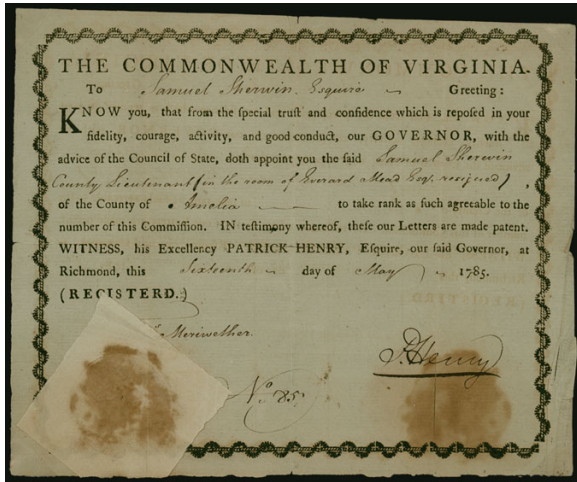 THE COMMONWEALTH OF VIRGINIA.
To Samuel Sherwin Esquire Greeting:
KNOW you, that from the special trust and confidence which is reposed in your
fidelity, courage, activity, and good conduct, our GOVERNOR, with the
advice of the Council of State, doth appoint you the said Samuel Sherwin
County Lieutenant (in the room of Everard Mead Esq. resigned),
of the County of Amelia to take rank as such agreeable to the
number of this Commission. IN testimony whereof, these our Letters are made patent.
WITNESS, his Excellency PATRICK HENRY, Esquire, our said Governor, at
Richmond, this Sixteenth day of May 1785.
(REGISTERD.)
Meriwether.
P. Henry
No. 85